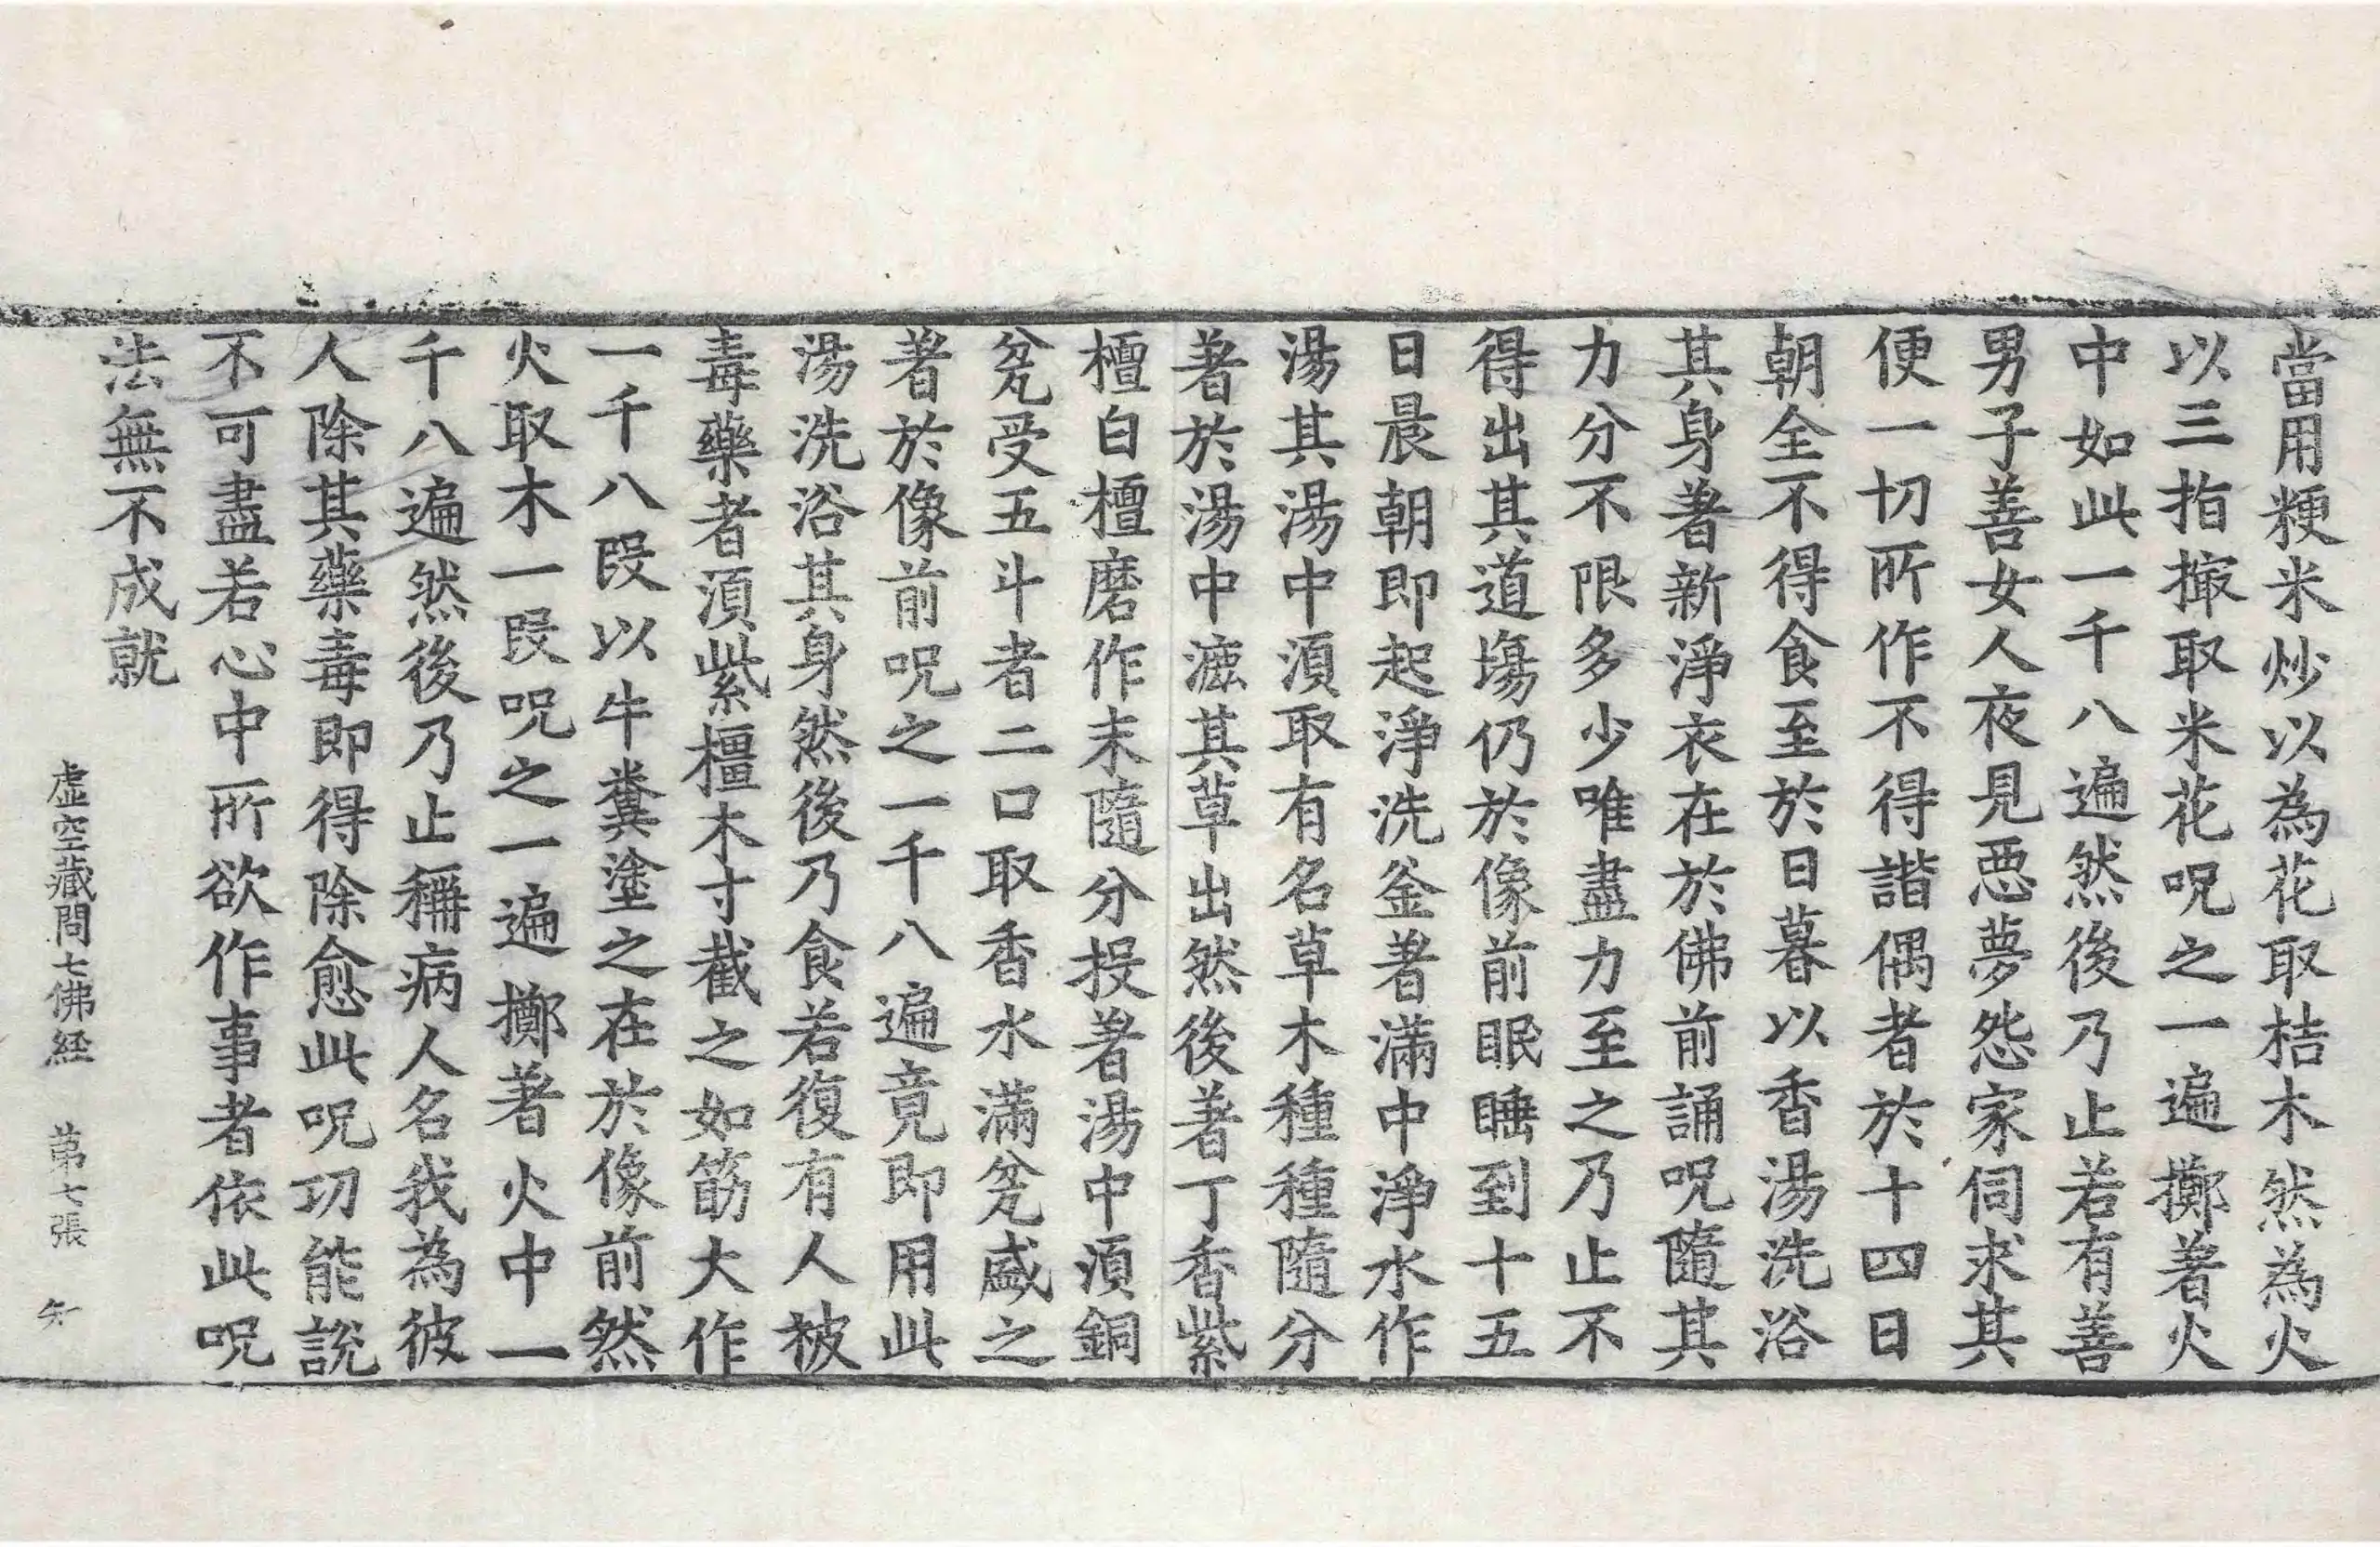 當用粳米炒以為花取桔木然為火
以三指撮取米花呪之一遍擲著火
中如此一千八遍然後乃止若有善
男子善女人夜見惡夢怨家伺求其
便一切所作不得諧偶者於十四日
朝全不得食至於日暮以香湯洗浴
其身著新淨衣在於佛前誦呪隨其
力分不限多少唯盡力至之乃止不
得出其道場仍於像前眠睡到十五
日晨朝即起淨洗釜著滿中淨水作
湯其湯中湏取有名草木種種隨分
著於湯中漉其草出然後著丁香紫
檀白檀磨作末隨分投著湯中湏銅
瓫受五斗者二口取香水滿瓫盛之
著於像前呪之一千八遍竟即用此
湯洗浴其身然後乃食若復有人被
毒藥者湏紫橿木寸截之如筯大作
一千八段以牛糞塗之在於像前然
火取木一段呪之一遍擲著火中一
千八遍然後乃止稱病人名我為彼
人除其藥毒即得除愈此呪功能說
不可盡若心中所欲作事者依此呪
法無不成就
虛空藏問七佛経 第七張